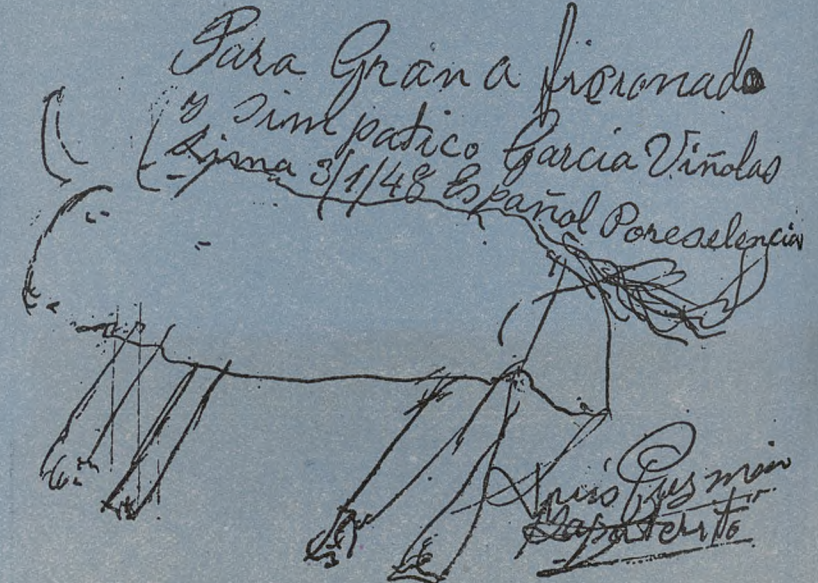 Para Gran a ficionado
y simpatico Garcia Viñolas
Lima 3/1/48 Español Poreselencia
Luis Guzmán
Zapaterito